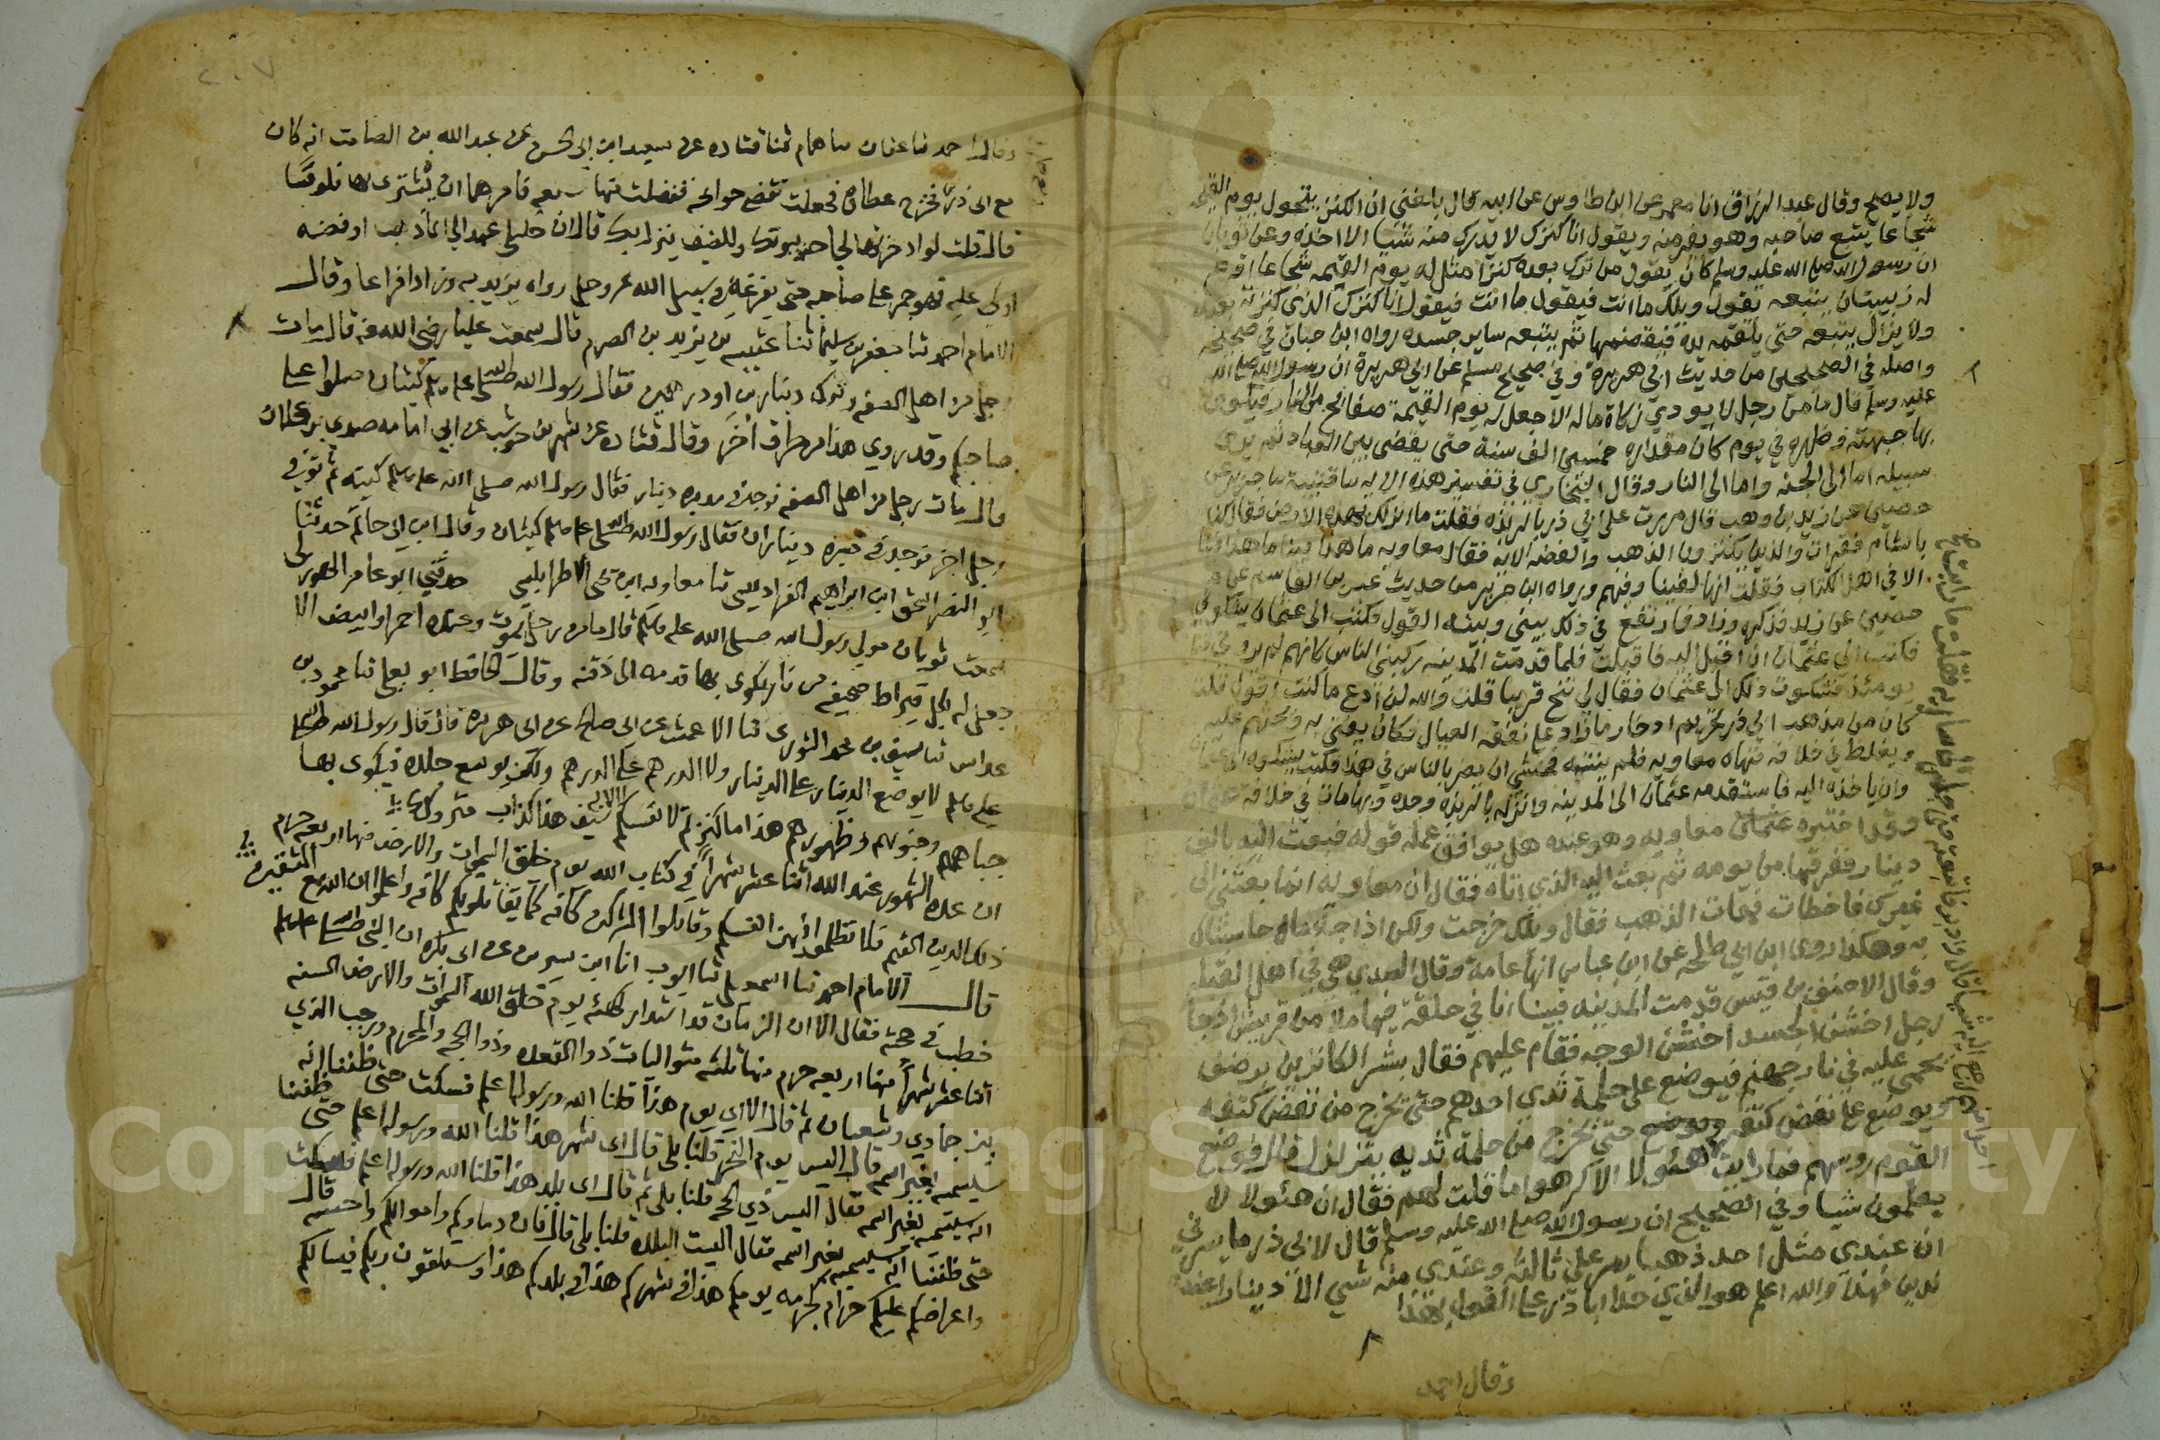 ولا يصح وقال عبد الرزاق انا معمر عن ابن طاوس عن ابيه قال بلغني ان الكنز يتحول يوم القيمة
شجاعا يتبع صاحبه وهو يفر منه ويقول انا كنزك لا يدرك منه شيا الا اخذه وعن ثوبان
ان رسول الله صلى الله عليه وسلم كان يقول من ترك بعده كنزا مثل له يوم القيمة شجاعا اقرع
له زبيبتان يتبعه يقول ويلك ما انت فيقول انا كنزك الذي كنزته بعدك
ولا يزال يتبعه حتى يلقمه يده فيقضمها ثم يتبعه ساير جسده رواه ابن حبان في صحيحه
واصله في الصحيحين من حديث ابي هريرة وفي صحيح مسلم عن ابي هريرة ان رسول الله صلى الله
عليه وسلم قال ما من رجل لا يودي زكاة ماله الا جعل له يوم القيمة صفائح من النار فيكوى
بها جبهته وظهره في يوم كان مقداره خمسين الف سنة حتى يقضى بين العباد ثم يرى
سبيله اما الى الجنه واما الى النار وقال البخاري في تفسير هذه الايه سا قتيبه سا جرير عن
حصين عن زيد بن وهب قال مررت على ابي ذر بالربذه فقلت ما انزلك بهذه الارض فقال كنا
بالشام فقرات والذين يكنزون الذهب والفضه الايه فقال معاويه ما هذا فينا ما هذا
الا في اهل الكتاب فقلت انها لفينا وفيهم ورواه ابن جرير من حديث عبثر بن القاسم عن
حصين عن زيد فذكره وزاد فارتفع في ذلك بيني وبينه القول فكتب الى عثمان يشكوني
فكتب الي عثمان ان اقبل اليه فاقبلت فلما قدمت المدينه ركبني الناس كانهم لم يروني
يومئذ فشكوت ذلك الى عثمان فقال لي تنح قريبا قلت والله لن ادع ما كنت اقول قلت
كان من مذهب ابي ذر تحريم ادخار ما زاد على نفقة العيال فكان يفتي به ويحثهم عليه
ويغلظ في خلافه فنهاه معاويه فلم ينته فخشي ان يضر بالناس في هذا فكتب يشكوه الى
وان ياخذه اليه فاستقدمه عثمان الى المدينه وانزله بالربذه وحده وبها مات في خلافة
وقد اختبره معاويه وهو عنده هل يوافق عمله قوله فبعث اليه بالف
دينار ففرقها من يومه ثم بعث اليه الذي اتاه فقال ان معاويه انما بعثني الى
غيرك فاخطات فهات الذهب فقال ويلك خرجت ولكن اذا جا مالي حاسبناك
به وهكذا روى ابن ابي طلحه عن ابن عباس انها عامة وقال السدي هي في اهل القبله
وقال الاحنف بن قيس قدمت المدينه فبينا انا في حلقة فيها ملا من قريش اذ جا
رجل اخشن الجسد اخشن الوجه فقام عليهم فقال بشر الكانزين برضف
يحمى عليه في نار جهنم فيوضع على حلمة ثدي احدهم حتى يخرج من نغض كتفه
ويوضع على نغض كتفه حتى يخرج من حلمة ثديه يتزلزل قال فوضع
القوم روسهم فما رايت هئولا الا كرهوا ما قلت لهم فقال ان هئولا لا
يعلمون شيا وفي الصحيح ان رسول الله صلى الله عليه وسلم قال لابي ذر ما يسرني
ان عندي مثل احد ذهبا يمر علي ثالثه وعندي منه شي الا دينار
لدين فهذا والله اعلم هو الذي حدا ابا ذر على القول بهذا
وقال احمد
٢٠٧
وقال احمد ثنا عفان سا همام ثنا قتاده عن سعيد بن ابي الحسن عن عبد الله بن الصامت انه كان
مع ابي ذر فخرج عطاوه فجعلت تقضي حوائجه ففضلت منها سبعه فامرها ان تشتري بها فلوسا
قال قلت لو ادخرتها لحاجه بيوتك وللضيف ينزل بك قال ان خليلي عهد الي ايما ذهب او فضه
اوكي عليه فهو جمر على صاحبه حتى يفرغه في سبيل الله عز وجل رواه يزيد به وزاد افراغا وقال
الامام احمد ثنا جعفر بن سليمان ثنا عتيبه بن يزيد بن الصرم قال سمعت عليا رضي الله عنه قال مات
رجل من اهل الصفه وترك دينارين او درهمين فقال رسول الله صلى الله عليه وسلم كيتان صلوا على
صاحبكم وقد روي هذا من طرق اخر وقال قتاده عن شهر بن حوشب عن ابي امامه صدي بن عجلان
قال مات رجل من اهل الصفه فوجد في ميزره دينار فقال رسول الله صلى الله عليه وسلم كيه ثم توفي
رجل اخر فوجد في ميزره ديناران فقال رسول الله صلى الله عليه وسلم كيتان وقال ابن ابي حاتم حدثنا
ابو النضر اسحق ابن ابراهيم الفراديسي ثنا معاويه بن يحيى الاطرابلسي حدثني ابو عامر الهوزني
سمعت ثوبان مولى رسول الله صلى الله عليه وسلم قال ما من رجل يموت وعنده احمر او ابيض الا
جعل له بكل قيراط صحيفه من نار يكوى بها قدمه الى ذقنه وقال الحافظ ابو يعلى ثنا محمود بن
خداش ثنا سيف بن محمد الثوري ثنا الاعمش عن ابي صالح عن ابي هريره قال قال رسول الله صلى الله
عليه وسلم لا يوضع الدينار على الدينار ولا الدرهم على الدرهم ولكن يوسع جلده فيكوى بها
جباههم وجنوبهم وظهورهم هذا ما كنزتم لانفسكم الايه سيف هذا كذاب متروك
ان عده الشهور عند الله اثنا عشر شهرا في كتاب الله يوم خلق السموات والارض منها اربعه حرم
ذلك الدين القيم فلا تظلموا فيهن انفسكم وقاتلوا المشركين كافه كما يقاتلونكم كافه واعلموا ان الله مع المتقين
قال الامام احمد ثنا اسمعيل ثنا ايوب انا ابن سيرين عن ابي بكره ان النبي صلى الله عليه وسلم
خطب في حجته فقال الا ان الزمان قد استدار كهيئه يوم خلق الله السموات والارض السنه
اثنا عشر شهرا منها اربعه حرم منها ثلثه متواليات ذو القعده وذو الحجه والمحرم ورجب الذي
بين جمادي وشعبان ثم قال الا اي يوم هذا قلنا الله ورسوله اعلم فسكت حتى ظننا انه
سيسميه بغير اسمه قال اليس يوم النحر قلنا بلى قال اي شهر هذا قلنا الله ورسوله اعلم حتى ظننا
انه سيسميه بغير اسمه فقال اليس ذي الحجه قلنا بلى ثم قال اي بلد هذا قلنا الله ورسوله اعلم فسكت
حتى ظننا انه سيسميه بغير اسمه فقال اليست البلده قلنا بلى قال فان دماوكم واموالكم واحسبه قال
واعراضكم عليكم حرام كحرمه يومكم هذا في شهركم هذا في بلدكم هذا وستلقون ربكم فيسالكم
Copyright © King Saud University